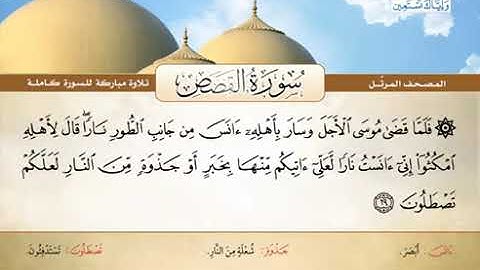 وَإِيَّاكَ نَسْتَعِينُ
المصحف المرتّل
سُورَةُ القَصَصِ
تلاوة مباركة للسورة كاملة
۞ فَلَمَّا قَضَىٰ مُوسَى ٱلْأَجَلَ وَسَارَ بِأَهْلِهِۦٓ ءَانَسَ مِن جَانِبِ ٱلطُّورِ نَارًاۖ قَالَ لِأَهْلِهِ
ٱمْكُثُوٓا۟ إِنِّىٓ ءَانَسْتُ نَارًا لَّعَلِّىٓ ءَاتِيكُم مِّنْهَا بِخَبَرٍ أَوْ جَذْوَةٍ مِّنَ ٱلنَّارِ لَعَلَّكُمْ
تَصْطَلُونَ ٢٩
ءَانَسَ: أَبْصَرَ. جَذْوَةٍ: شُعْلَةٍ مِنَ النَّارِ. تَصْطَلُونَ: تَسْتَدْفِئُونَ.